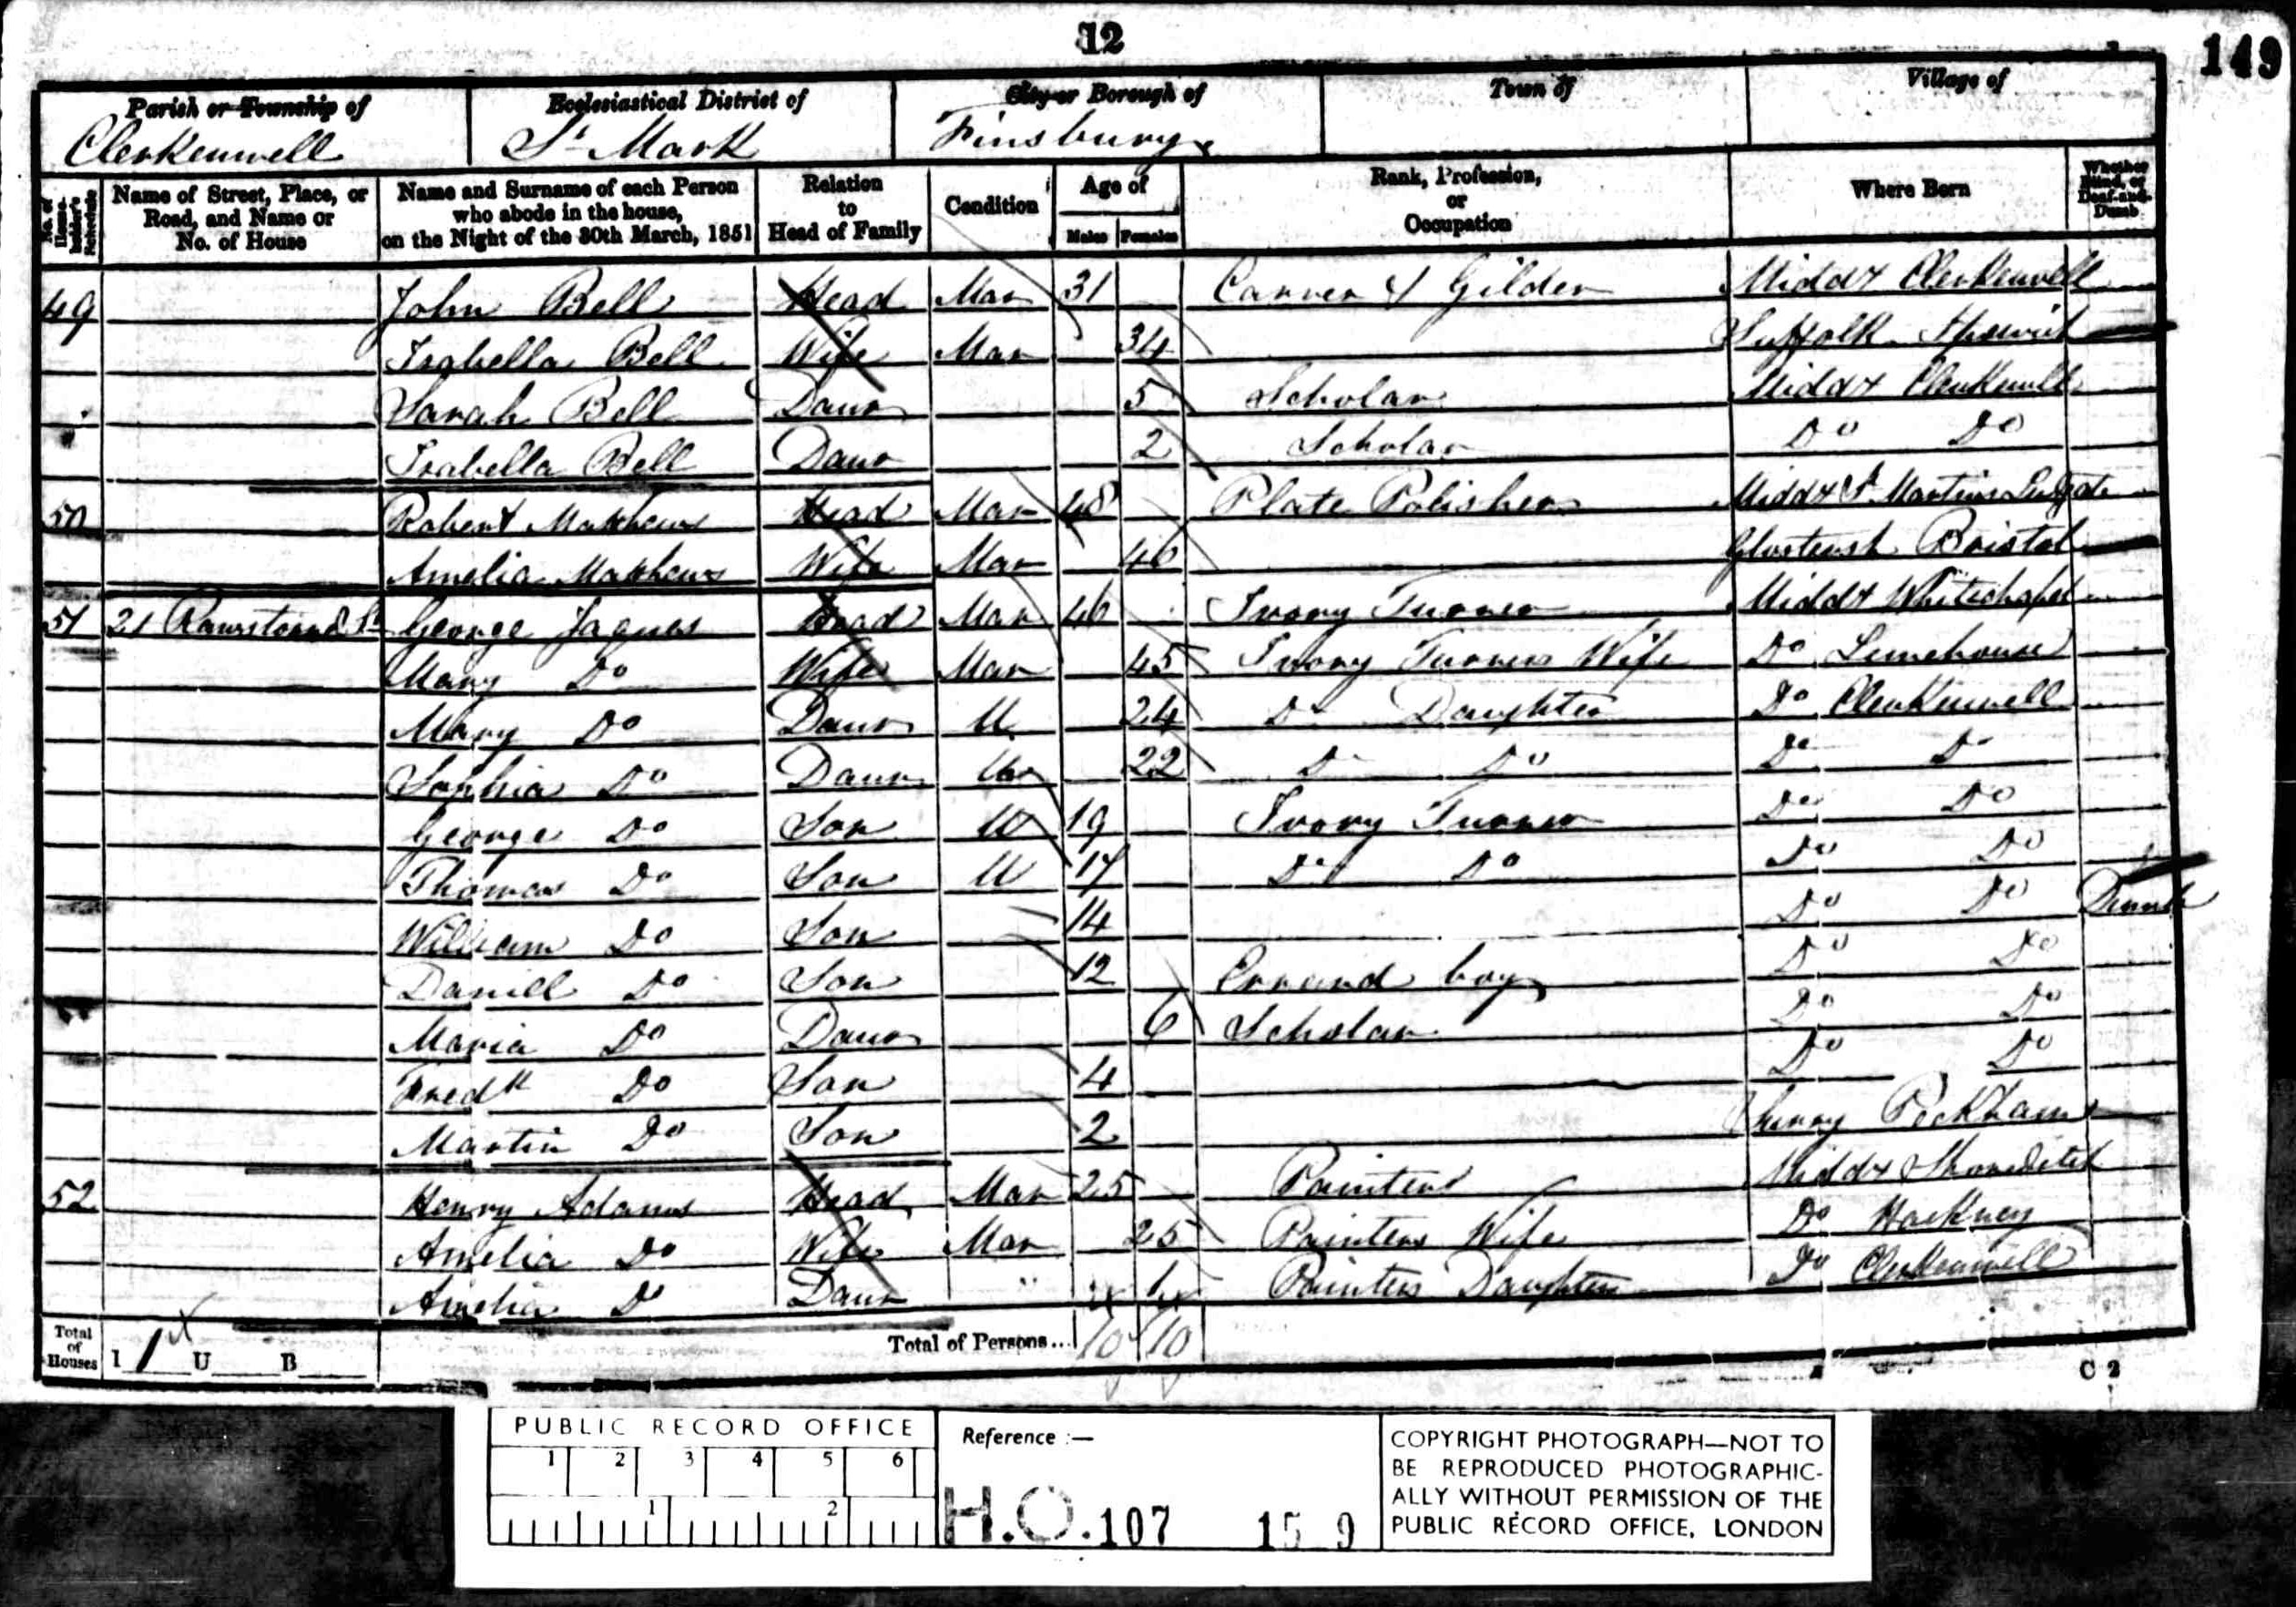 12
149
Parish or Township of
Ecclesiastical District of
City or Borough of
Town of
Village of
Clerkenwell
St Mark
Finsbury
No. of House-holder's Schedule
Name of Street, Place, or Road, and Name or No. of House
Name and Surname of each Person who abode in the house, on the Night of the 30th March, 1851
Relation to Head of Family
Condition
Age of
Males Females
Rank, Profession, or Occupation
Where Born
Whether Blind, or Deaf-and-Dumb
49 John Bell Head Mar 31 Carver & Gilder Middx Clerkenwell
Isabella Bell Wife Mar 34 Suffolk Ipswich
Sarah Bell Daur 5 Scholar Middx Clerkenwell
Isabella Bell Daur 2 Scholar Do Do
50 Robert Matthews Head Mar 48 Plate Polisher Middx St Martins
Amelia Matthews Wife Mar 46 Bristol
51 21 George Jaques Head Mar 46 Ivory Turner Middx Whitechapel
Mary Do Wife Mar 45 Ivory Turners Wife Do Limehouse
Mary Do Daur U 24 Do Daughter Do Clerkenwell
Sophia Do Daur U 22 Do Do Do Do
George Do Son U 19 Ivory Turner Do Do
Thomas Do Son U 17 Do Do Do Do
William Do Son 14 Do Do Dumb
Daniell Do Son 12 Errand boy Do Do
Maria Do Daur 6 Scholar Do Do
Fredk Do Son 4 Do Do
Martin Do Son 2 Surrey Peckham
52 Henry Adams Head Mar 25 Painter Middx Shoreditch
Amelia Do Wife Mar 25 Painters Wife Do Hackney
Amelia Do Daur Painters Daughter Do Clerkenwell
Total of Houses I 1 U B
Total of Persons... 10 10
C 2
PUBLIC RECORD OFFICE
1 2 3 4 5 6
1 2
Reference :—
H.O. 107 15 9
COPYRIGHT PHOTOGRAPH—NOT TO
BE REPRODUCED PHOTOGRAPHIC-
ALLY WITHOUT PERMISSION OF THE
PUBLIC RECORD OFFICE, LONDON